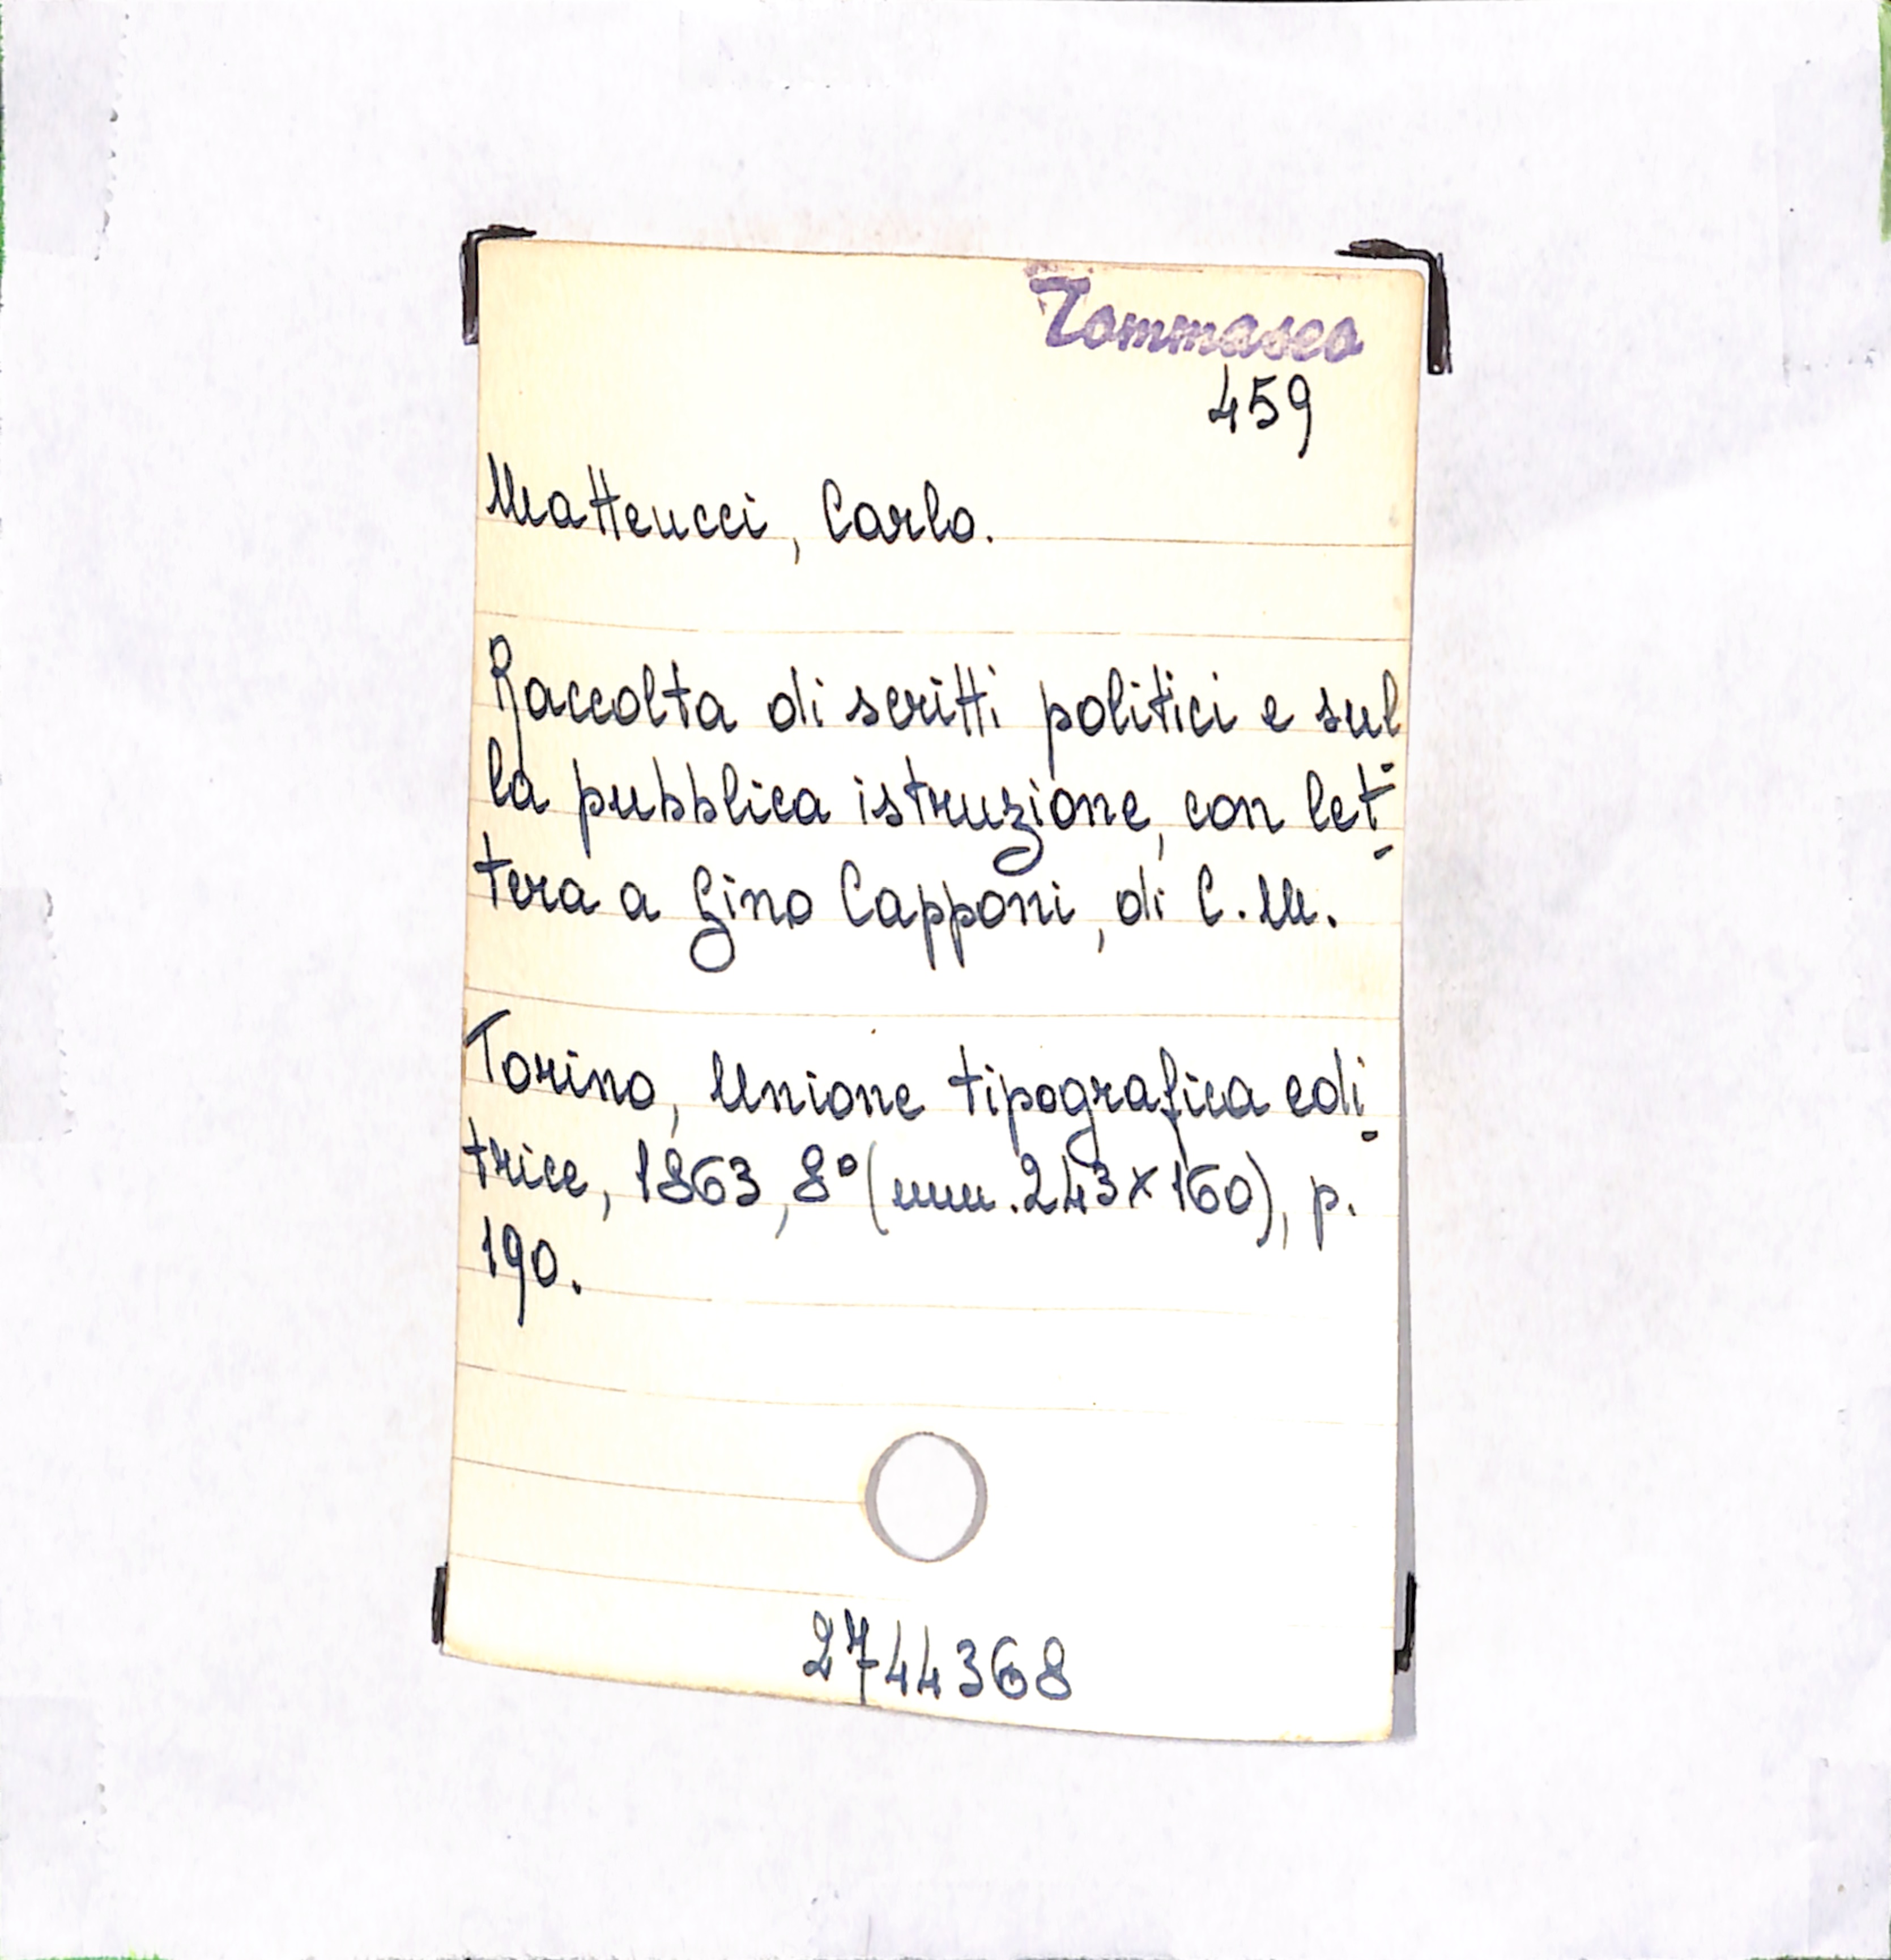 Tommaseo
459
Matteucci, Carlo.
Raccolta di scritti politici e sul-
la pubblica istruzione, con let-
tera a Gino Capponi, di C. M.
Torino, Unione tipografica edi-
trice, 1863, 8° (mm. 243 x 160), p.
190.
2744368